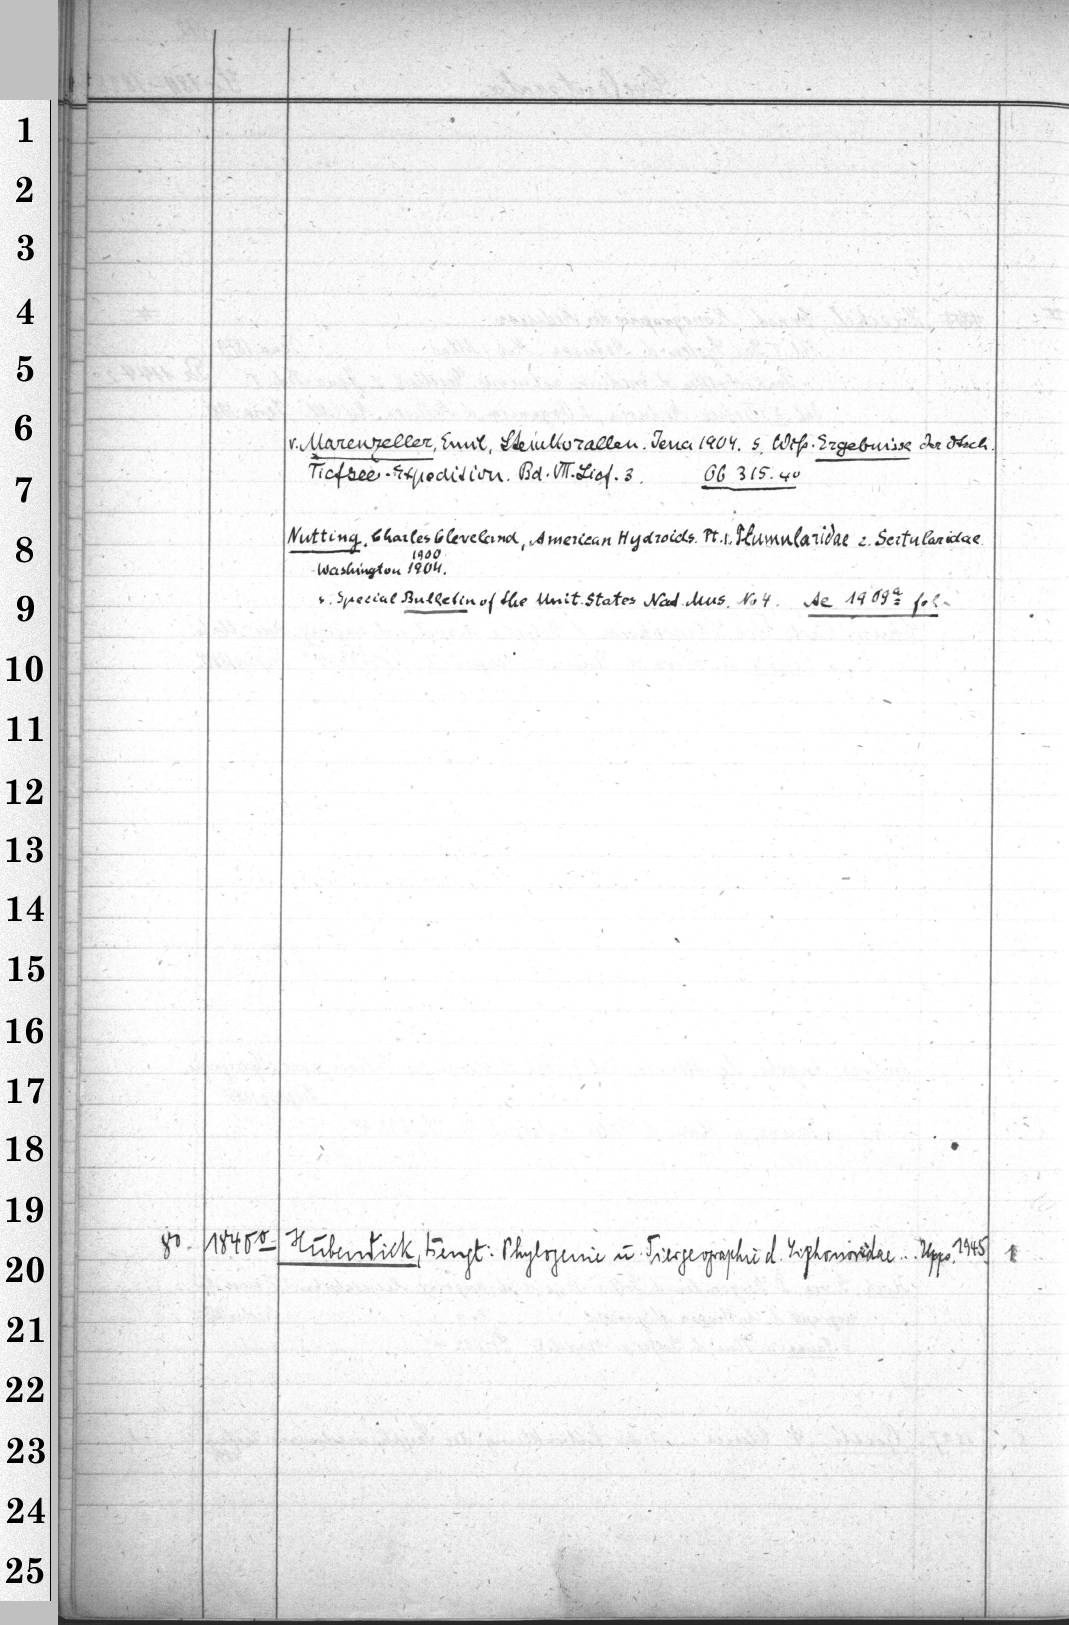 1
2
3
4
5
6
v. Marenzeller, Emil, Steinkorallen. Jena 1904. s. Wiss. Ergebnisse der dtsch.
7
Tiefsee-Expedition. Bd. VII. Lief. 3. Gb 315. 4o
8
Nutting, Charles Cleveland, American Hydroids. Pt. 1. Plumularidae 2. Sertularidae.
1900
Washington 1904.
9
s. Special Bulletin of the Unit. States Nat. Mus. No 4. Ac 1909a fol.
10
11
12
13
14
15
16
17
18
19
80. 1845o Hubendick, Bengt: Phylogenie u. Tiergeographie d. Siphonariidae... Upps. 1945. 1
20
21
22
23
24
25